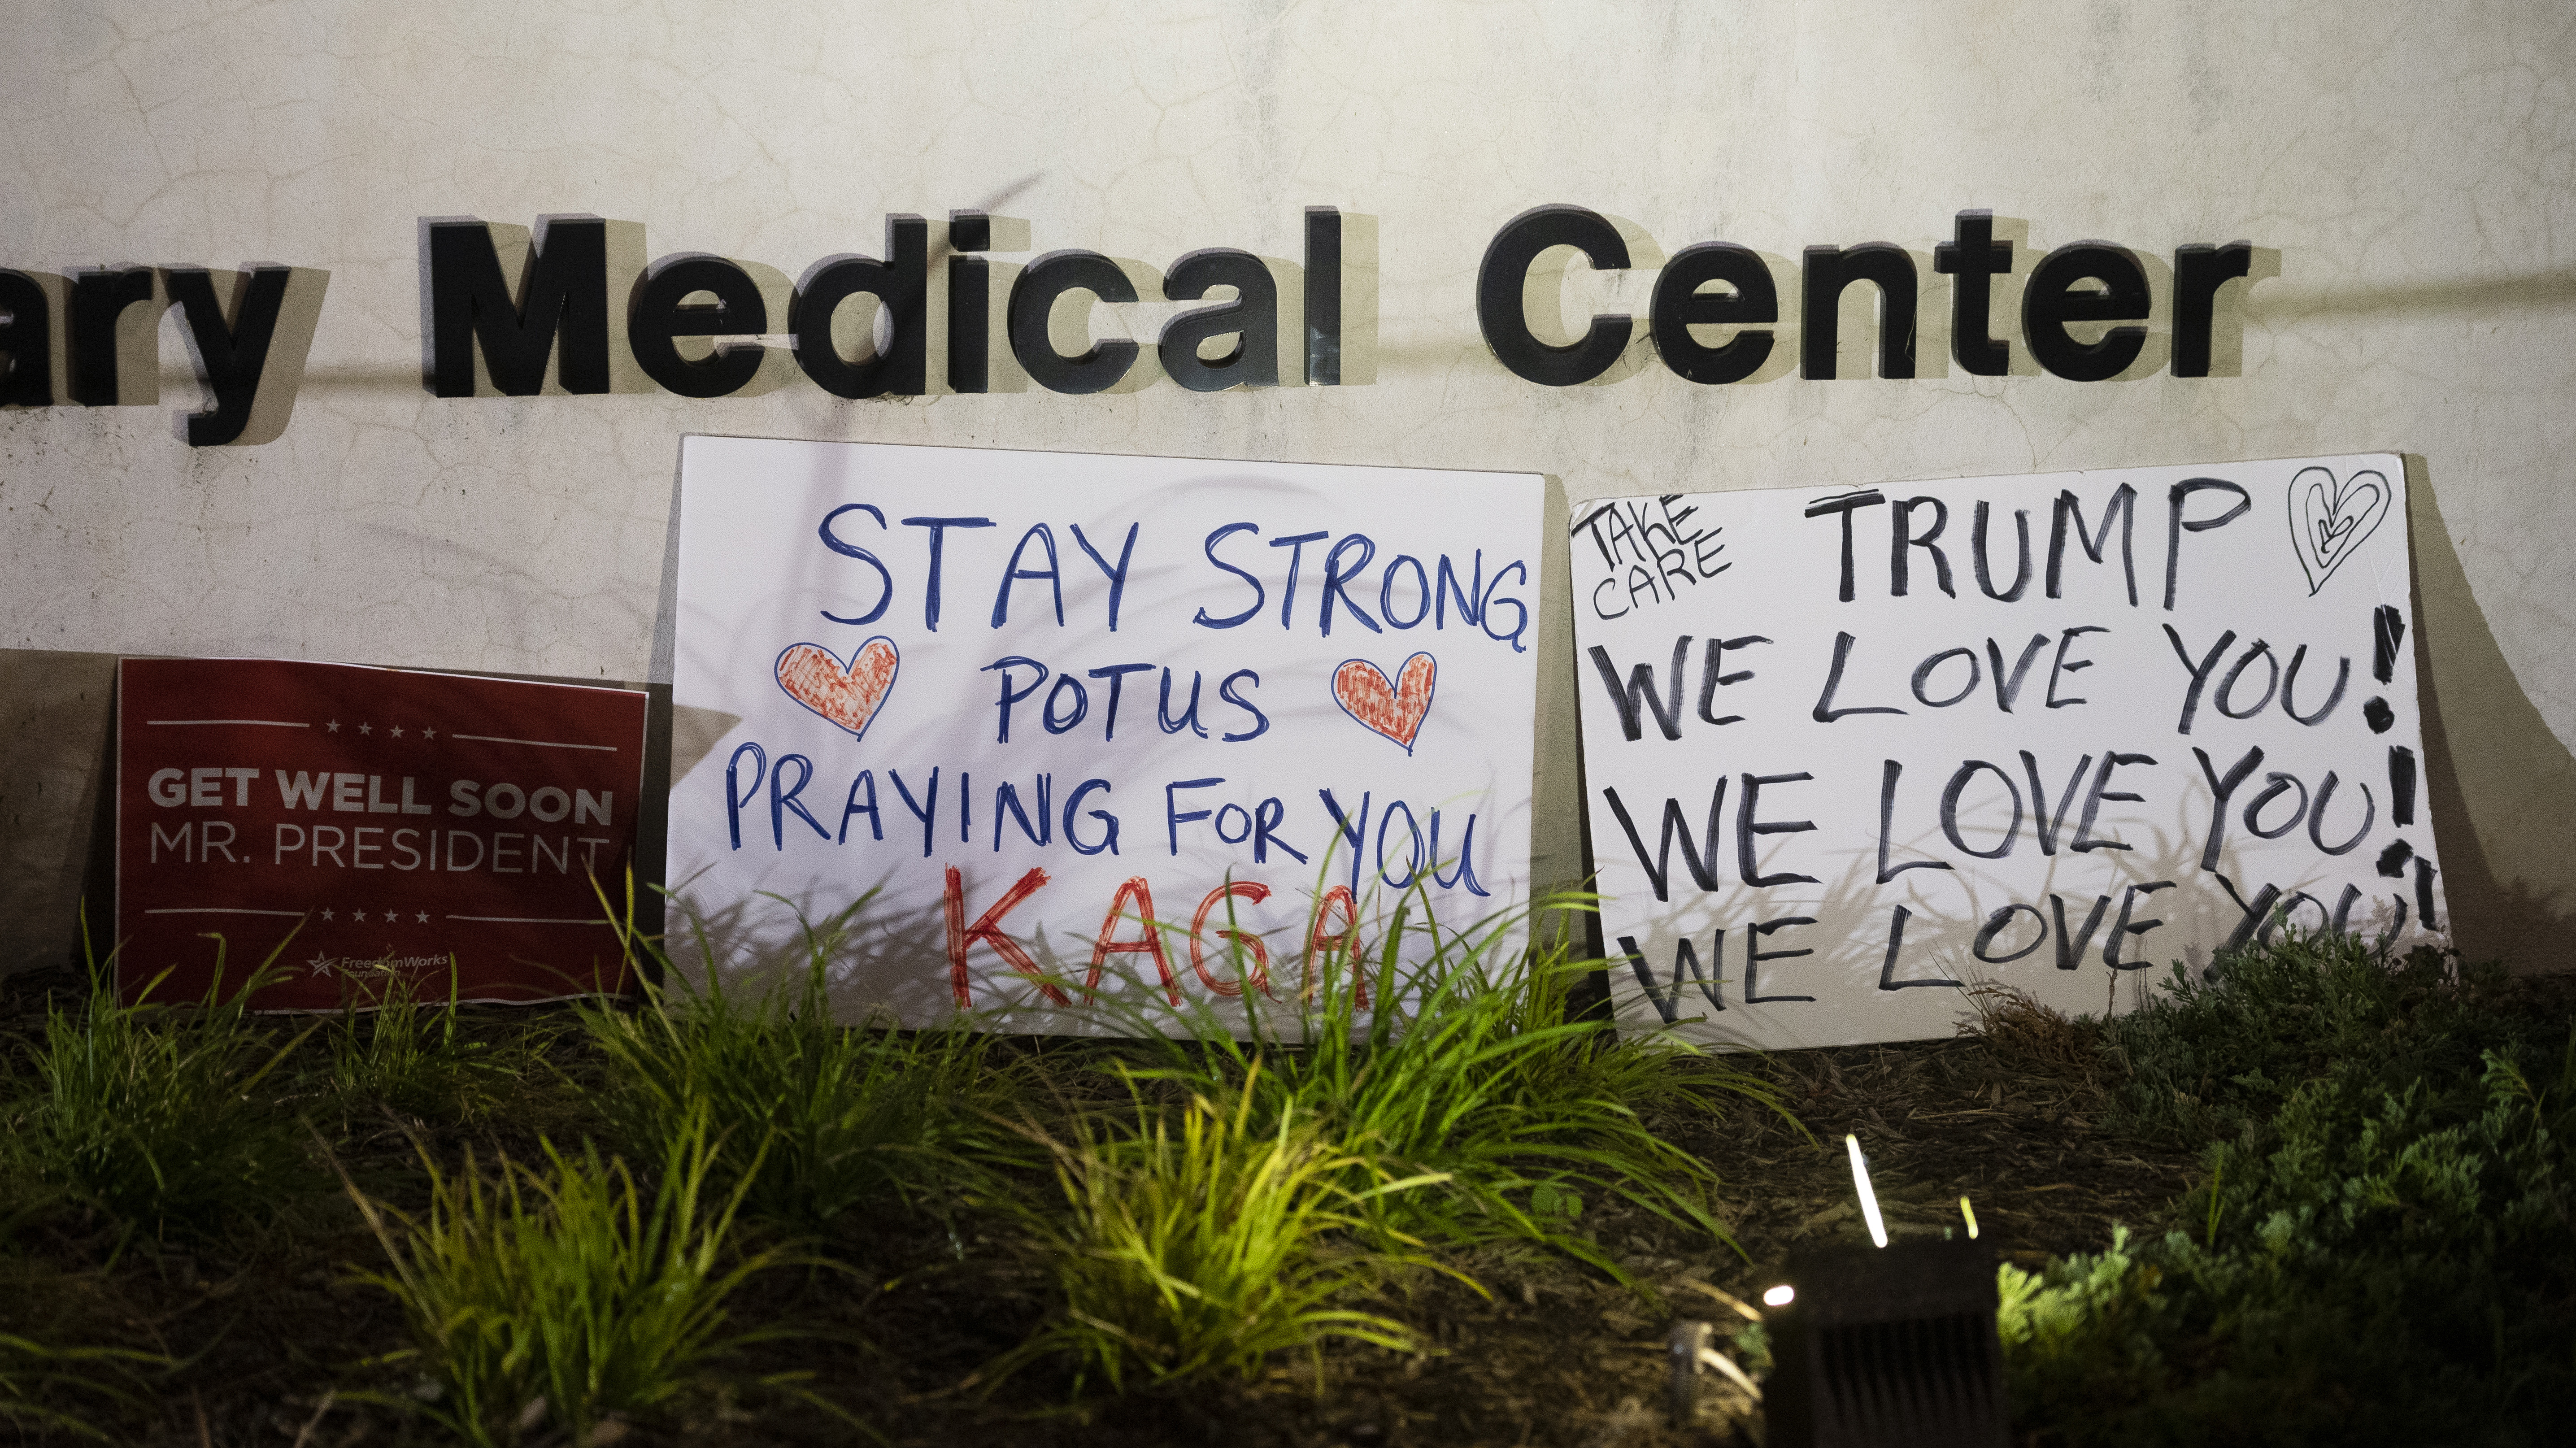 ary Medical Center
GET WELL SOON
MR. PRESIDENT
FreedomWorks
Foundation
STAY STRONG
POTUS
PRAYING FOR YOU
KAGA
TAKE
CARE
TRUMP
WE LOVE YOU!
WE LOVE YOU!
WE LOVE YOU!